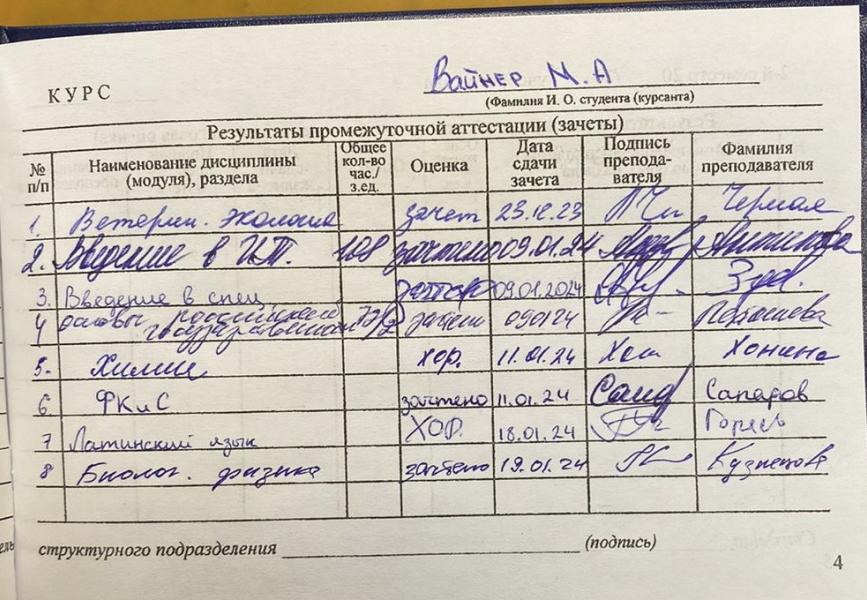 Вайнер М. А
КУРС
(Фамилия И. О. студента (курсанта)
Результаты промежуточной аттестации (зачеты)
№ п/п Наименование дисциплины (модуля), раздела Общее кол-во час./ з.ед. Оценка Дата сдачи зачета Подпись препода- вателя Фамилия преподавателя
1. Ветерин. экология зачет 23.12.23 Черная
2. Введение в И.Т. 108 зачтено 09.01.24
3. Введение в спец. 09.01.2024
4 основы российской государственности зачтен 090124
5. Химии хор. 11.01.24 Хон Хонина
6 ФКиС зачтено 11.01.24 Сапаров
7 Латинский язык ХОР. 18.01.24
8 Биолог. физика зачтено 19.01.24 Кузнецов
структурного подразделения (подпись)
4